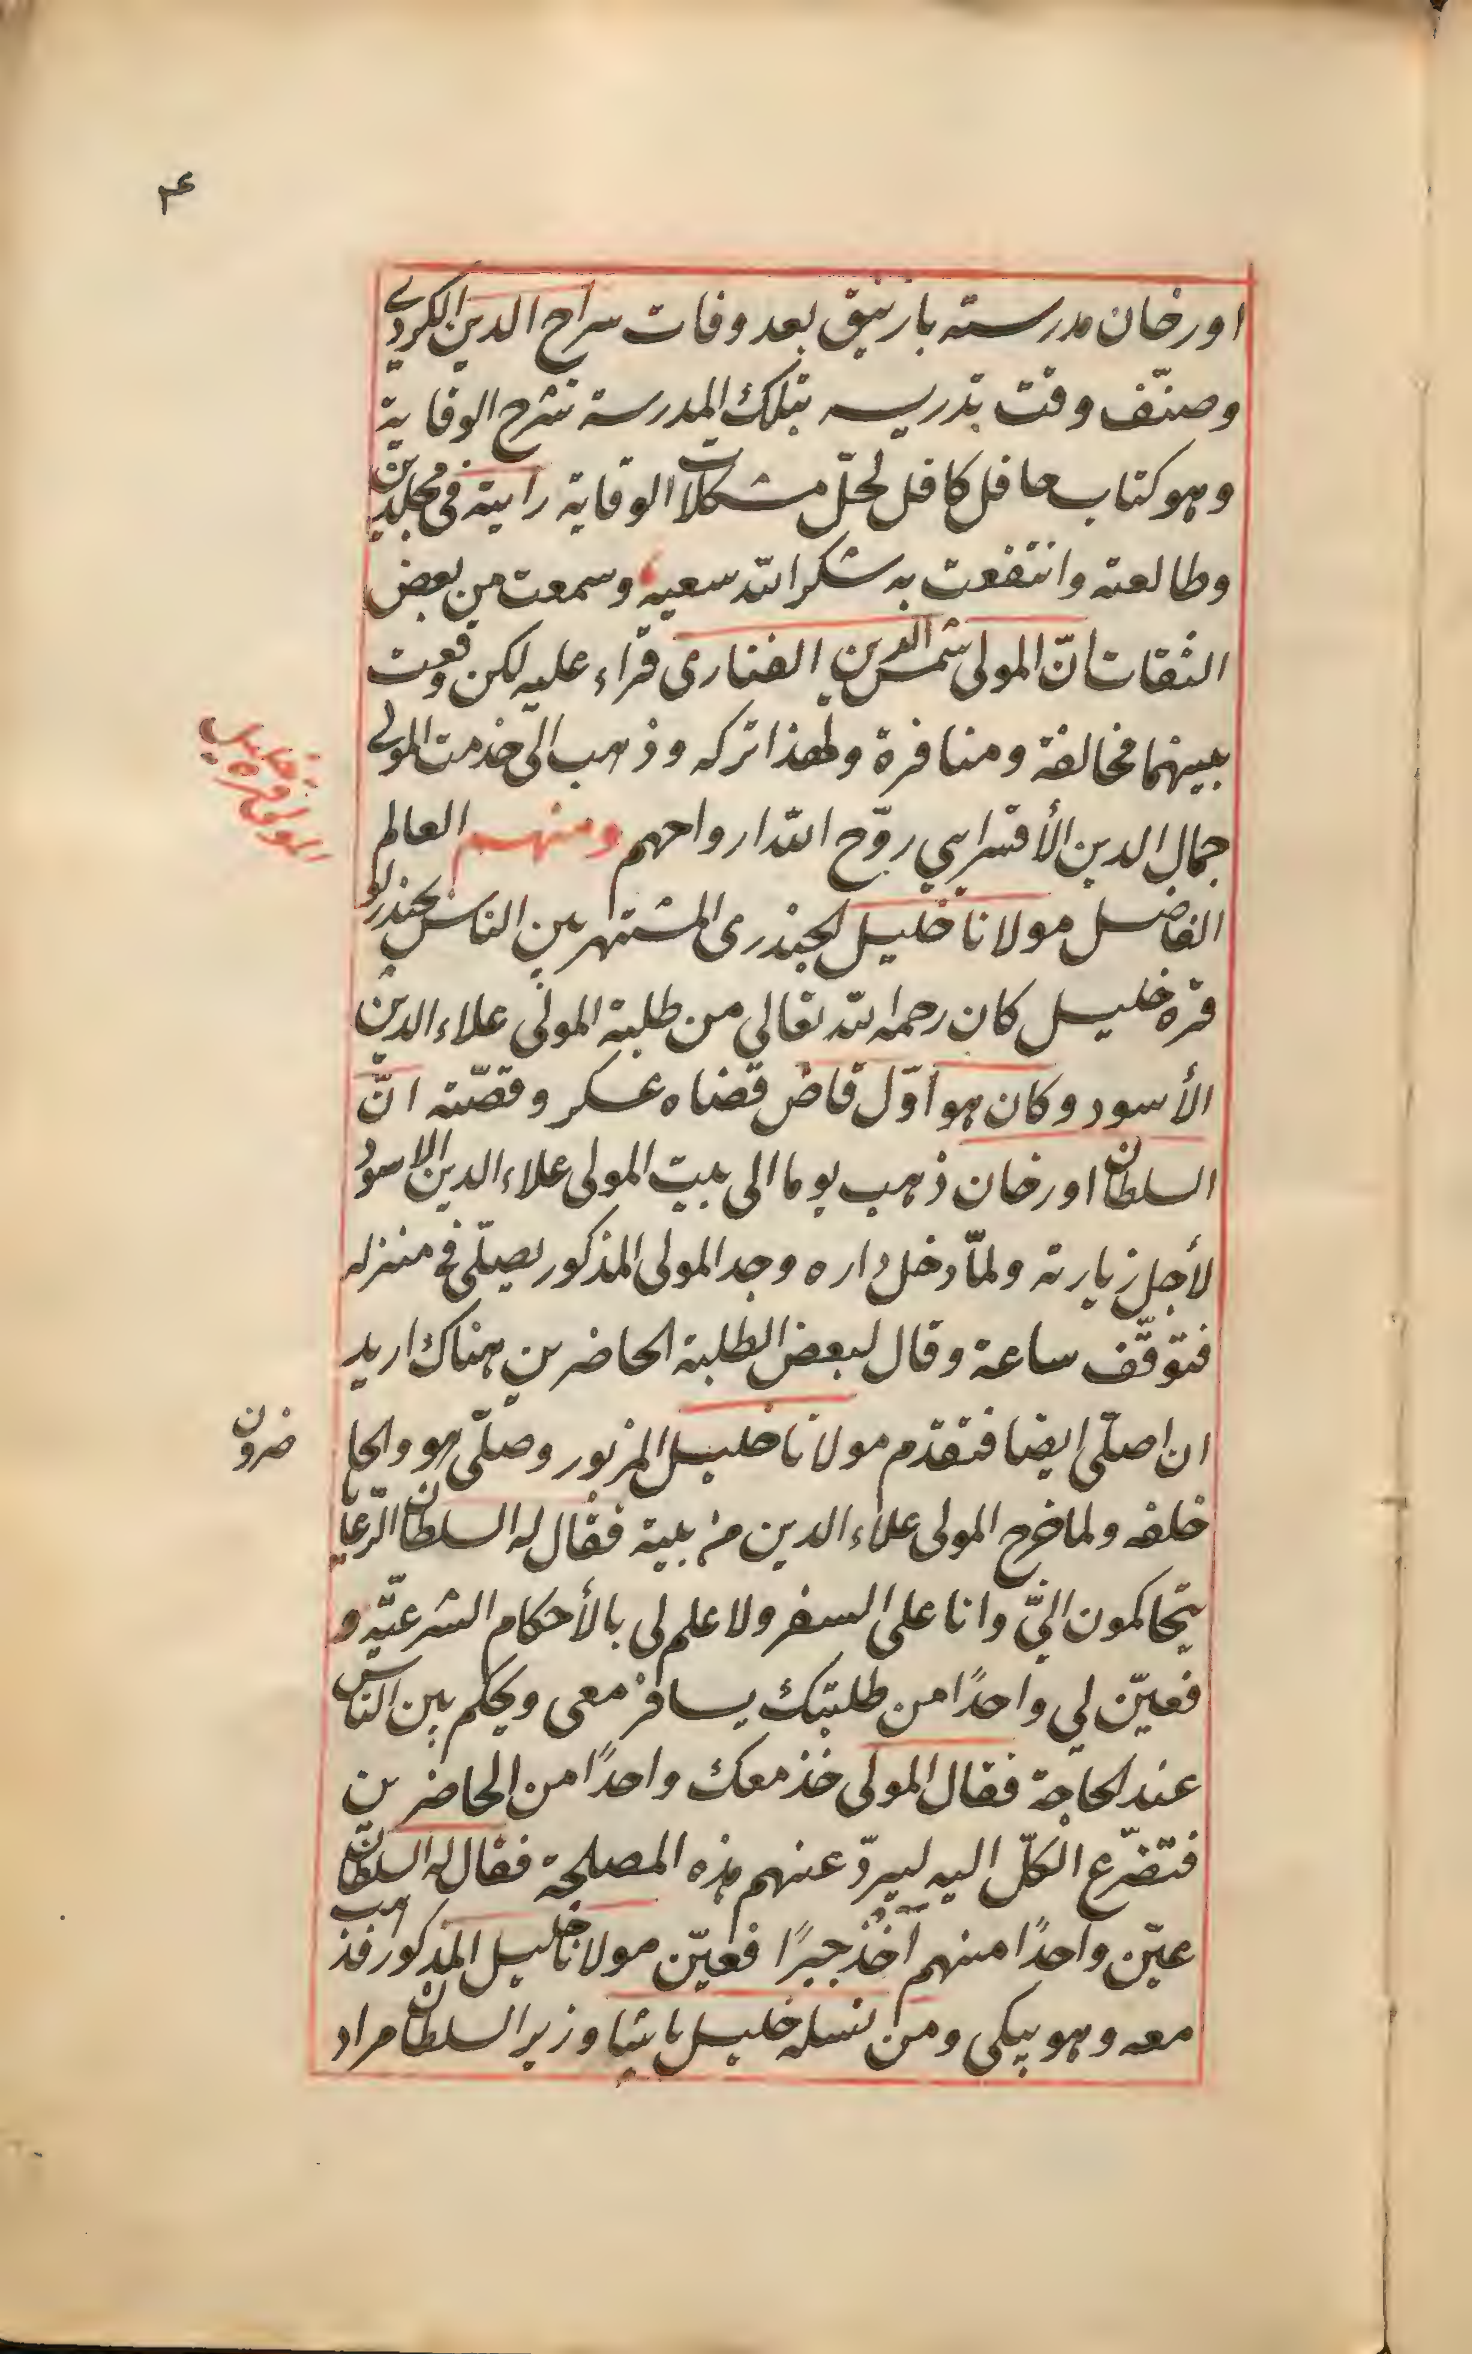 ۴
اورخان مدرسته بازنيق بعد وفات سراج الدين الكردي
وصنّف وقت تدريسه بتلك المدرسة شرح الوقاية
وهو كتاب حافل كافل لحلّ مشكلات الوقاية رايته في مجلدين
وطالعته وانتفعت به شكر الله سعيه وسمعت من بعض
الثقات انّ المولى شمس الدين الفنارى قراء عليه لكن وقعت
بينهما مخالفة ومنافرة ولهذا تركه وذهب الى خدمت المولى
جمال الدين الأقسرايي روّح الله ارواحهم ومنهم العالم
الفاضل مولانا خليل الجندرى المشتهر بين الناس بجندرلو
قره خليل كان رحمه الله تعالى من طلبة المولى علاء الدين
الأسود وكان هو اوّل قاض قضاه عسكر وقصّته انّ
السلطان اورخان ذهب يوما الى بيت المولى علاء الدين الاسود
لأجل زيارته ولمّا دخل داره وجد المولى المذكور يصلّى في منزله
فتوقّف ساعة وقال لبعض الطلبة الحاضرين هناك اريد
ان اصلّى ايضا فتقدّم مولانا خليل المزبور وصلّى هو والحا
ضرون
خلفه ولما خرج المولى علاء الدين من بيته فقال له السلطان الرّعايا
يتحاكمون اليّ وانا على السفر ولا علم لى بالأحكام الشرعيّه و
فعيّن لي واحدًا من طلبتك يسافر معى ويحكم بين الناس
عند الحاجة فقال المولى خذ معك واحدًا من الحاضرين
فتضرّع الكلّ اليه ليردّ عنهم هذه المصلحة فقال له السلطان
عيّن واحدًا منهم آخذ جبرًا فعيّن مولانا خليل المذكور فذهب
معه وهو يبكى ومن نسله خليل باشا وزير السلطان مراد